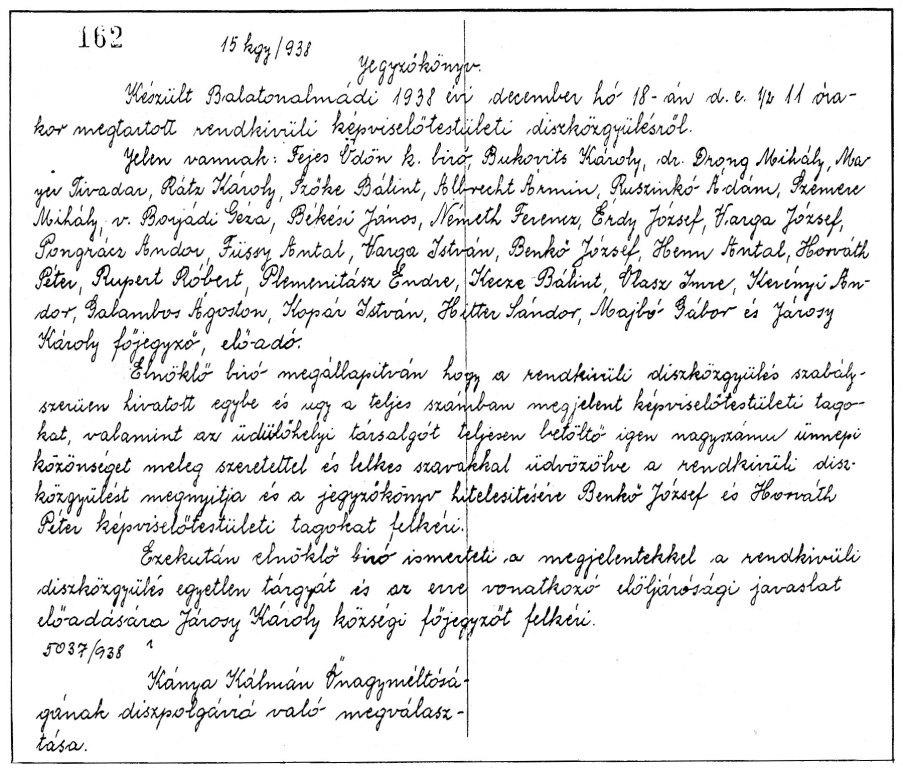 162
15 kgy/938
Jegyzőkönyv.
Készült Balatonalmádi 1938 évi december hó 18-án d.e. ½ 11 óra-
kor megtartott rendkivüli képviselőtestületi diszközgyülésről.
Jelen vannak: Fejes Ödön k. biró, Bukovits Károly, dr. Drong Mihály, Ma-
yer Tivadar, Rátz Károly, Szőke Bálint, Albrecht Ármin, Ruszinkó Ádám, Szemere
Mihály, v. Borjádi Géza, Békési János, Németh Ferencz, Érdy József, Varga József,
Pongrácz Andor, Füssy Antal, Varga István, Benkő József, Henn Antal, Horváth
Péter, Rupert Róbert, Plemenitász Endre, Kecze Bálint, Vlasz Imre, Kerényi An-
dor, Galambos Ágoston, Kopár István, Hitter Sándor, Majbó Gábor és Járosy
Károly főjegyző, előadó.
Elnöklő biró megállapitván hogy a rendkivüli diszközgyülés szabály-
szerüen hivatott egybe és ugy a teljes számban megjelent képviselőtestületi tago-
kat, valamint az üdülőhelyi társalgót teljesen betöltő igen nagyszámu ünnepi
közönséget meleg szeretettel és lelkes szavakkal üdvözölve a rendkivüli disz-
közgyülést megnyitja és a jegyzőkönyv hitelesitésére Benkő József és Horváth
Péter képviselőtestületi tagokat felkéri.
Ezekután elnöklő biró ismerteti a megjelentekkel a rendkivüli
diszközgyülés egyetlen tárgyát és az erre vonatkozó elöljárósági javaslat
előadására Járosy Károly községi főjegyzőt felkéri.
5037/938
Kánya Kálmán Őnagyméltósá-
gának diszpolgárrá való megválasz-
tása.